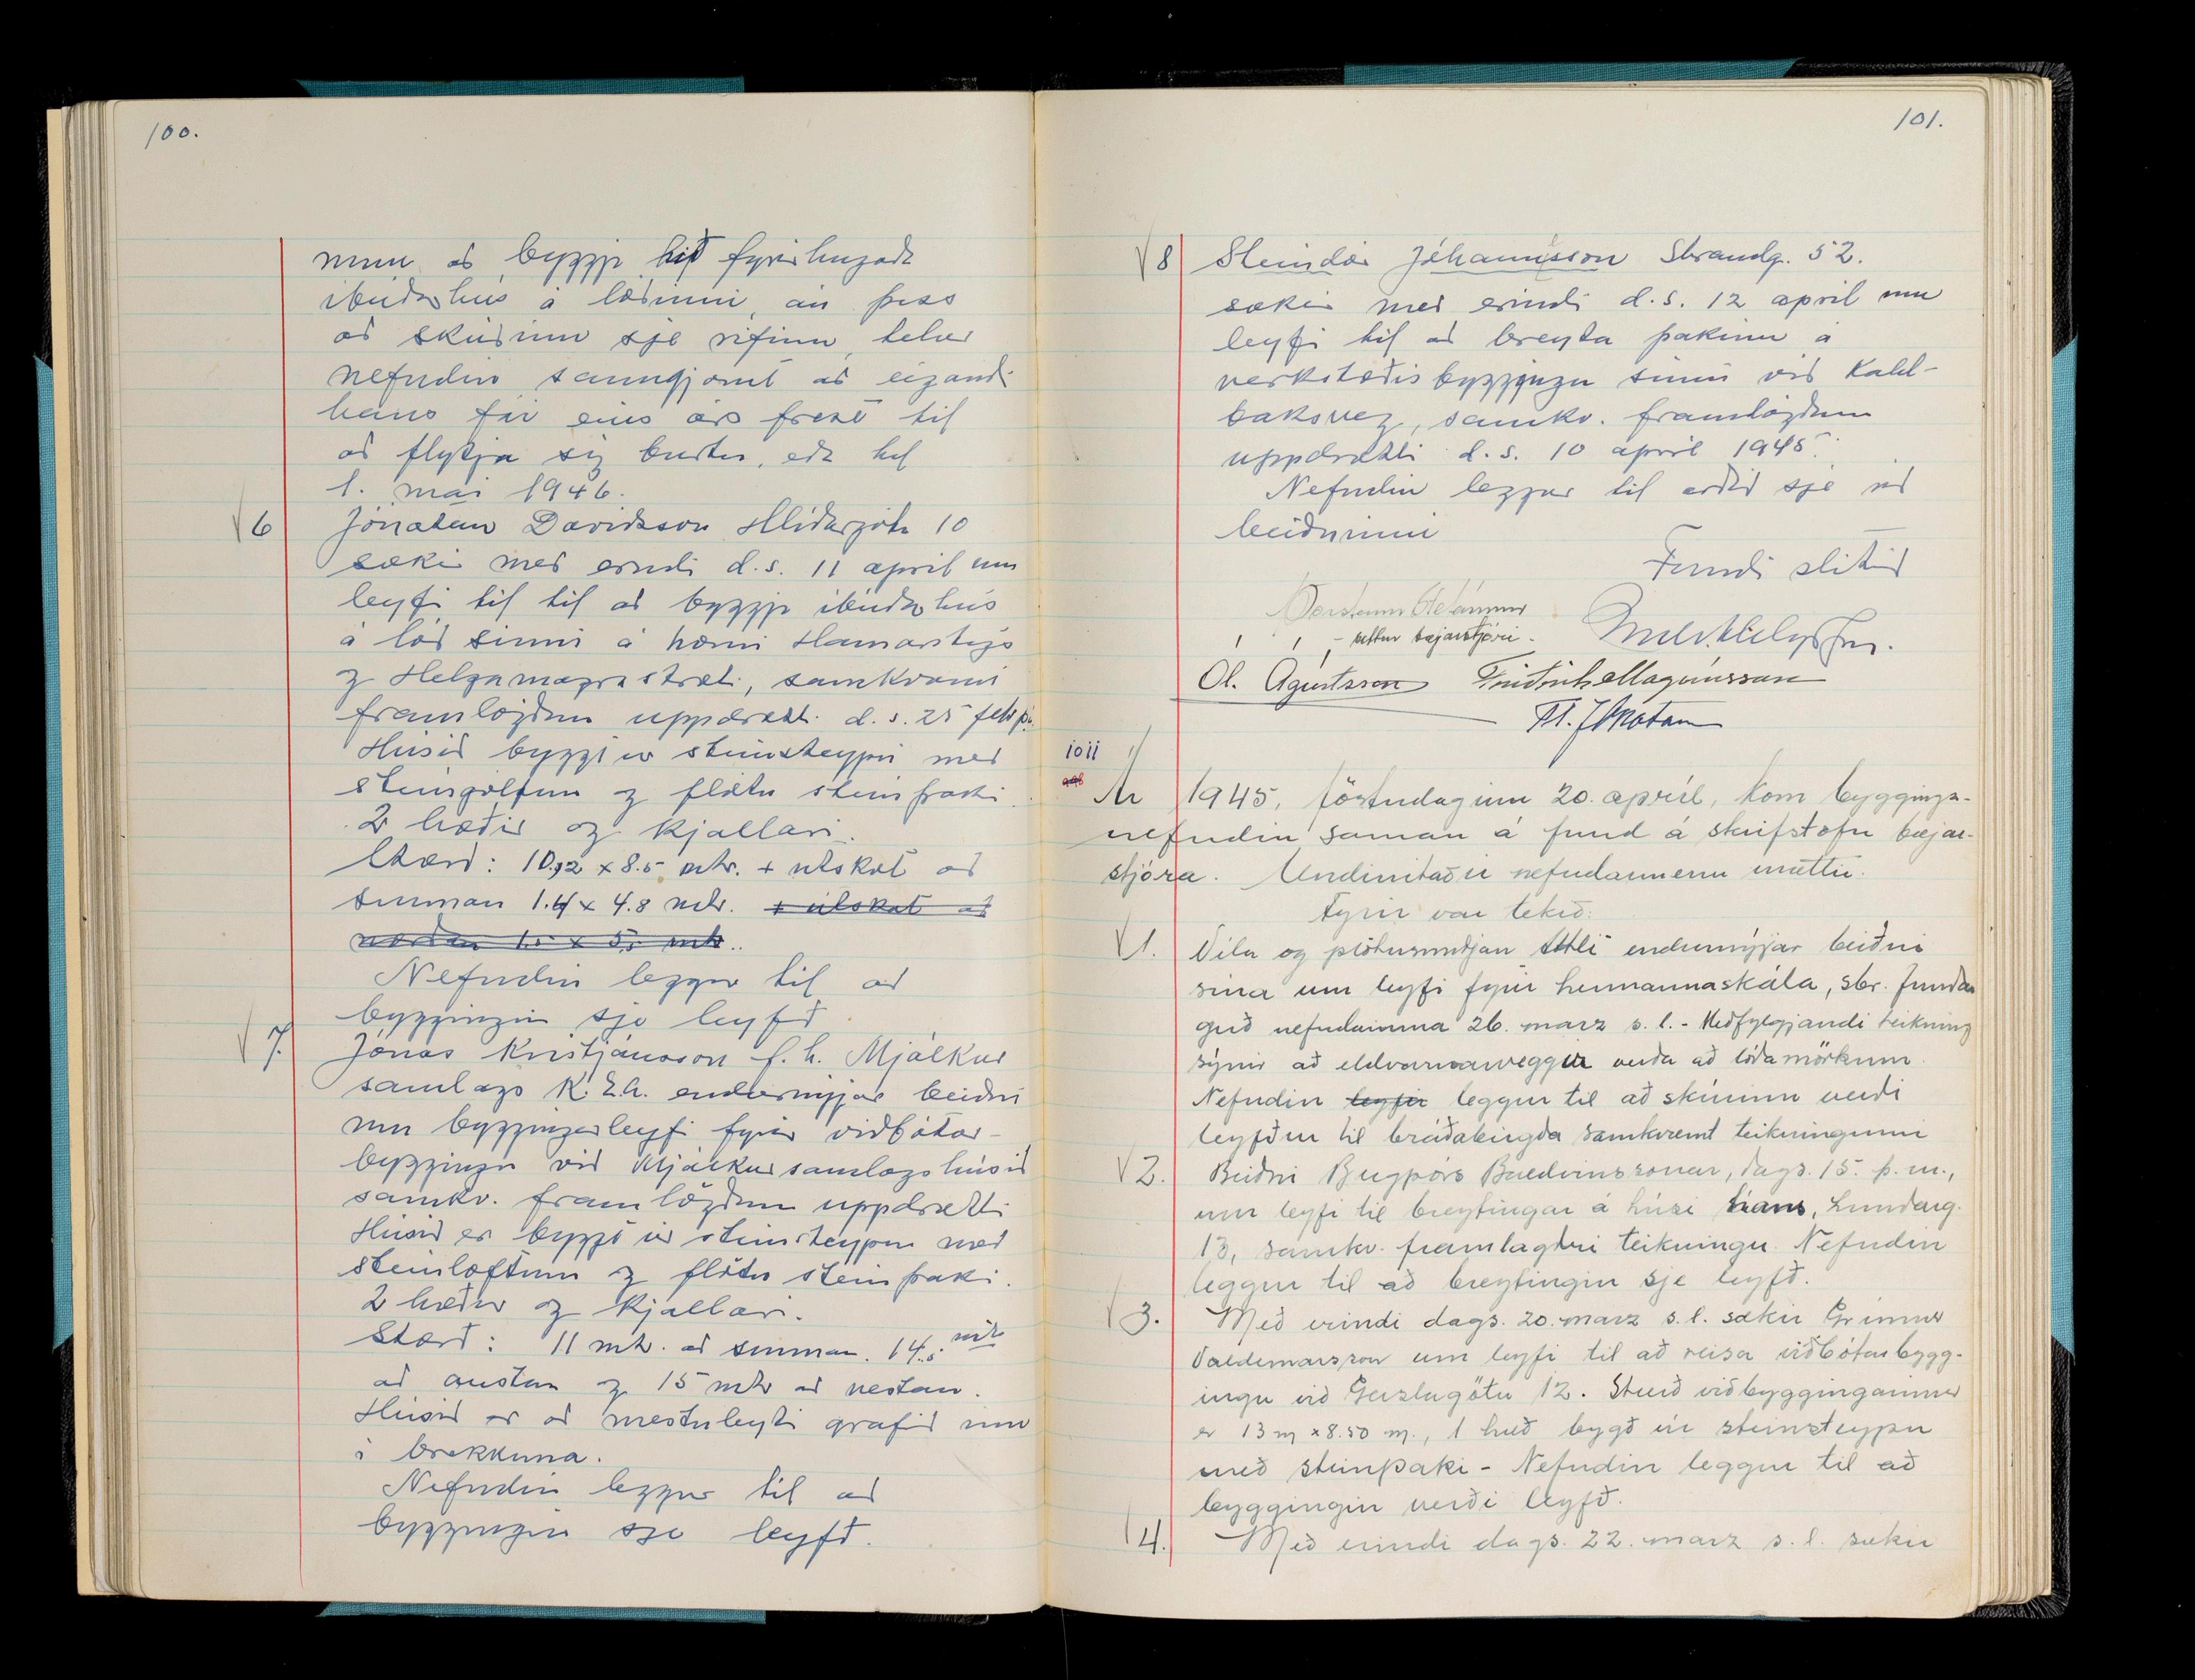 100.
num að byggja hið fyrirhugaða
íbúðarhús á lóðinni, án þess
að skúrinn sje rifinn, telur
Nefndin sanngjarnt að eigandi
hans fái eins árs frest til
að flytja sig burtu, eða til
1. mai 1946.
6 Jónatan Davidsson Hlíðargötu 10
sækir með erindi d.s. 11 april um
leyfi til til að byggja íbúðarhús
á lóð sinni á horni Hamarstigs
og Helgamagrastræti, samkvæmt
framlögðum uppdrætti d.s. 25 febr.
Húsið byggt úr steinsteypu með
steingólfum og flötu steinþaki.
2 hæðir og kjallari.
Stærð: 10.92 x 8.5 mtr. + útskot að
sunnan 1.4 x 4.8 mtr. + útskot að
norðan 1.5 x 5. mtr..
Nefndin leggur til að
byggingin sje leyfð
7. Jónas Kristjánsson f.h. Mjólkur
samlags K.E.A. endurnýjar beiðni
um byggingarleyfi fyrir viðbótar-
byggingu við Mjólkursamlagshúsið
samkv. framlögðum uppdrætti
Húsið er byggt úr steinsteypu með
steinloftum og flötu steinþaki.
2 hæðir og kjallari.
Stærð: 11 mtr. að sunnan. 14.5 mtr
að austan og 15 mtr að vestan.
Húsið er að mestuleyti grafið inn
í brekkuna.
Nefndin leggur til að
byggingin sje leyfð.
101.
8 Steindór Jóhannsson Strandg. 52.
sækir með erindi d.s. 12 april um
leyfi til að breyta þakinu á
verkstæðisbyggingu sinni við Kald-
baksveg, samkv. framlögðum
uppdrætti d.s. 10 april 1945.
Nefndin leggur til orðið sje við
beiðninni
Fundi slitið
Þorsteinn Stefánsson
settur bæjarstjóri.
Ól. Ágústsson Friðrik Magnússon
Ár 1945, föstudaginn 20. apríl, kom bygginga-
nefndin saman á fund á skrifstofu bæjar-
stjóra. Undirritaðir nefndarmenn mættir.
Fyrir var tekið:
1. Véla og plötusmiðjan Atli endurnýjar beiðni
sína um leyfi fyrir hermannaskála, sbr. funda
gerð nefndarinnar 26. marz s.l. - Meðfylgjandi teikning
sýnir að eldvarnarveggir verða að lóðamörkum.
Nefndin leyfir leggur til að skúrinn verði
leyfður til bráðabirgða samkvæmt teikningunni
2. Beiðni Bergþórs Baldvinssonar, dags. 15. þ.m.,
um leyfi til breytingar á húsi hans, Lundarg.
13, samkv. framlagðri teikningu. Nefndin
leggur til að breytingin sje leyfð.
3. Með erindi dags. 20. marz s.l. sækir Grímur
Valdemarsson um leyfi til að reisa viðbótarbygg-
ingu við Geislagötu 12. Stærð viðbyggingarinnar
er 13 m x 8.50 m., 1 hæð bygð úr steinsteypu
með steinþaki - Nefndin leggur til að
byggingin verði leyfð.
4. Með erindi dags. 22. marz s.l. sækir